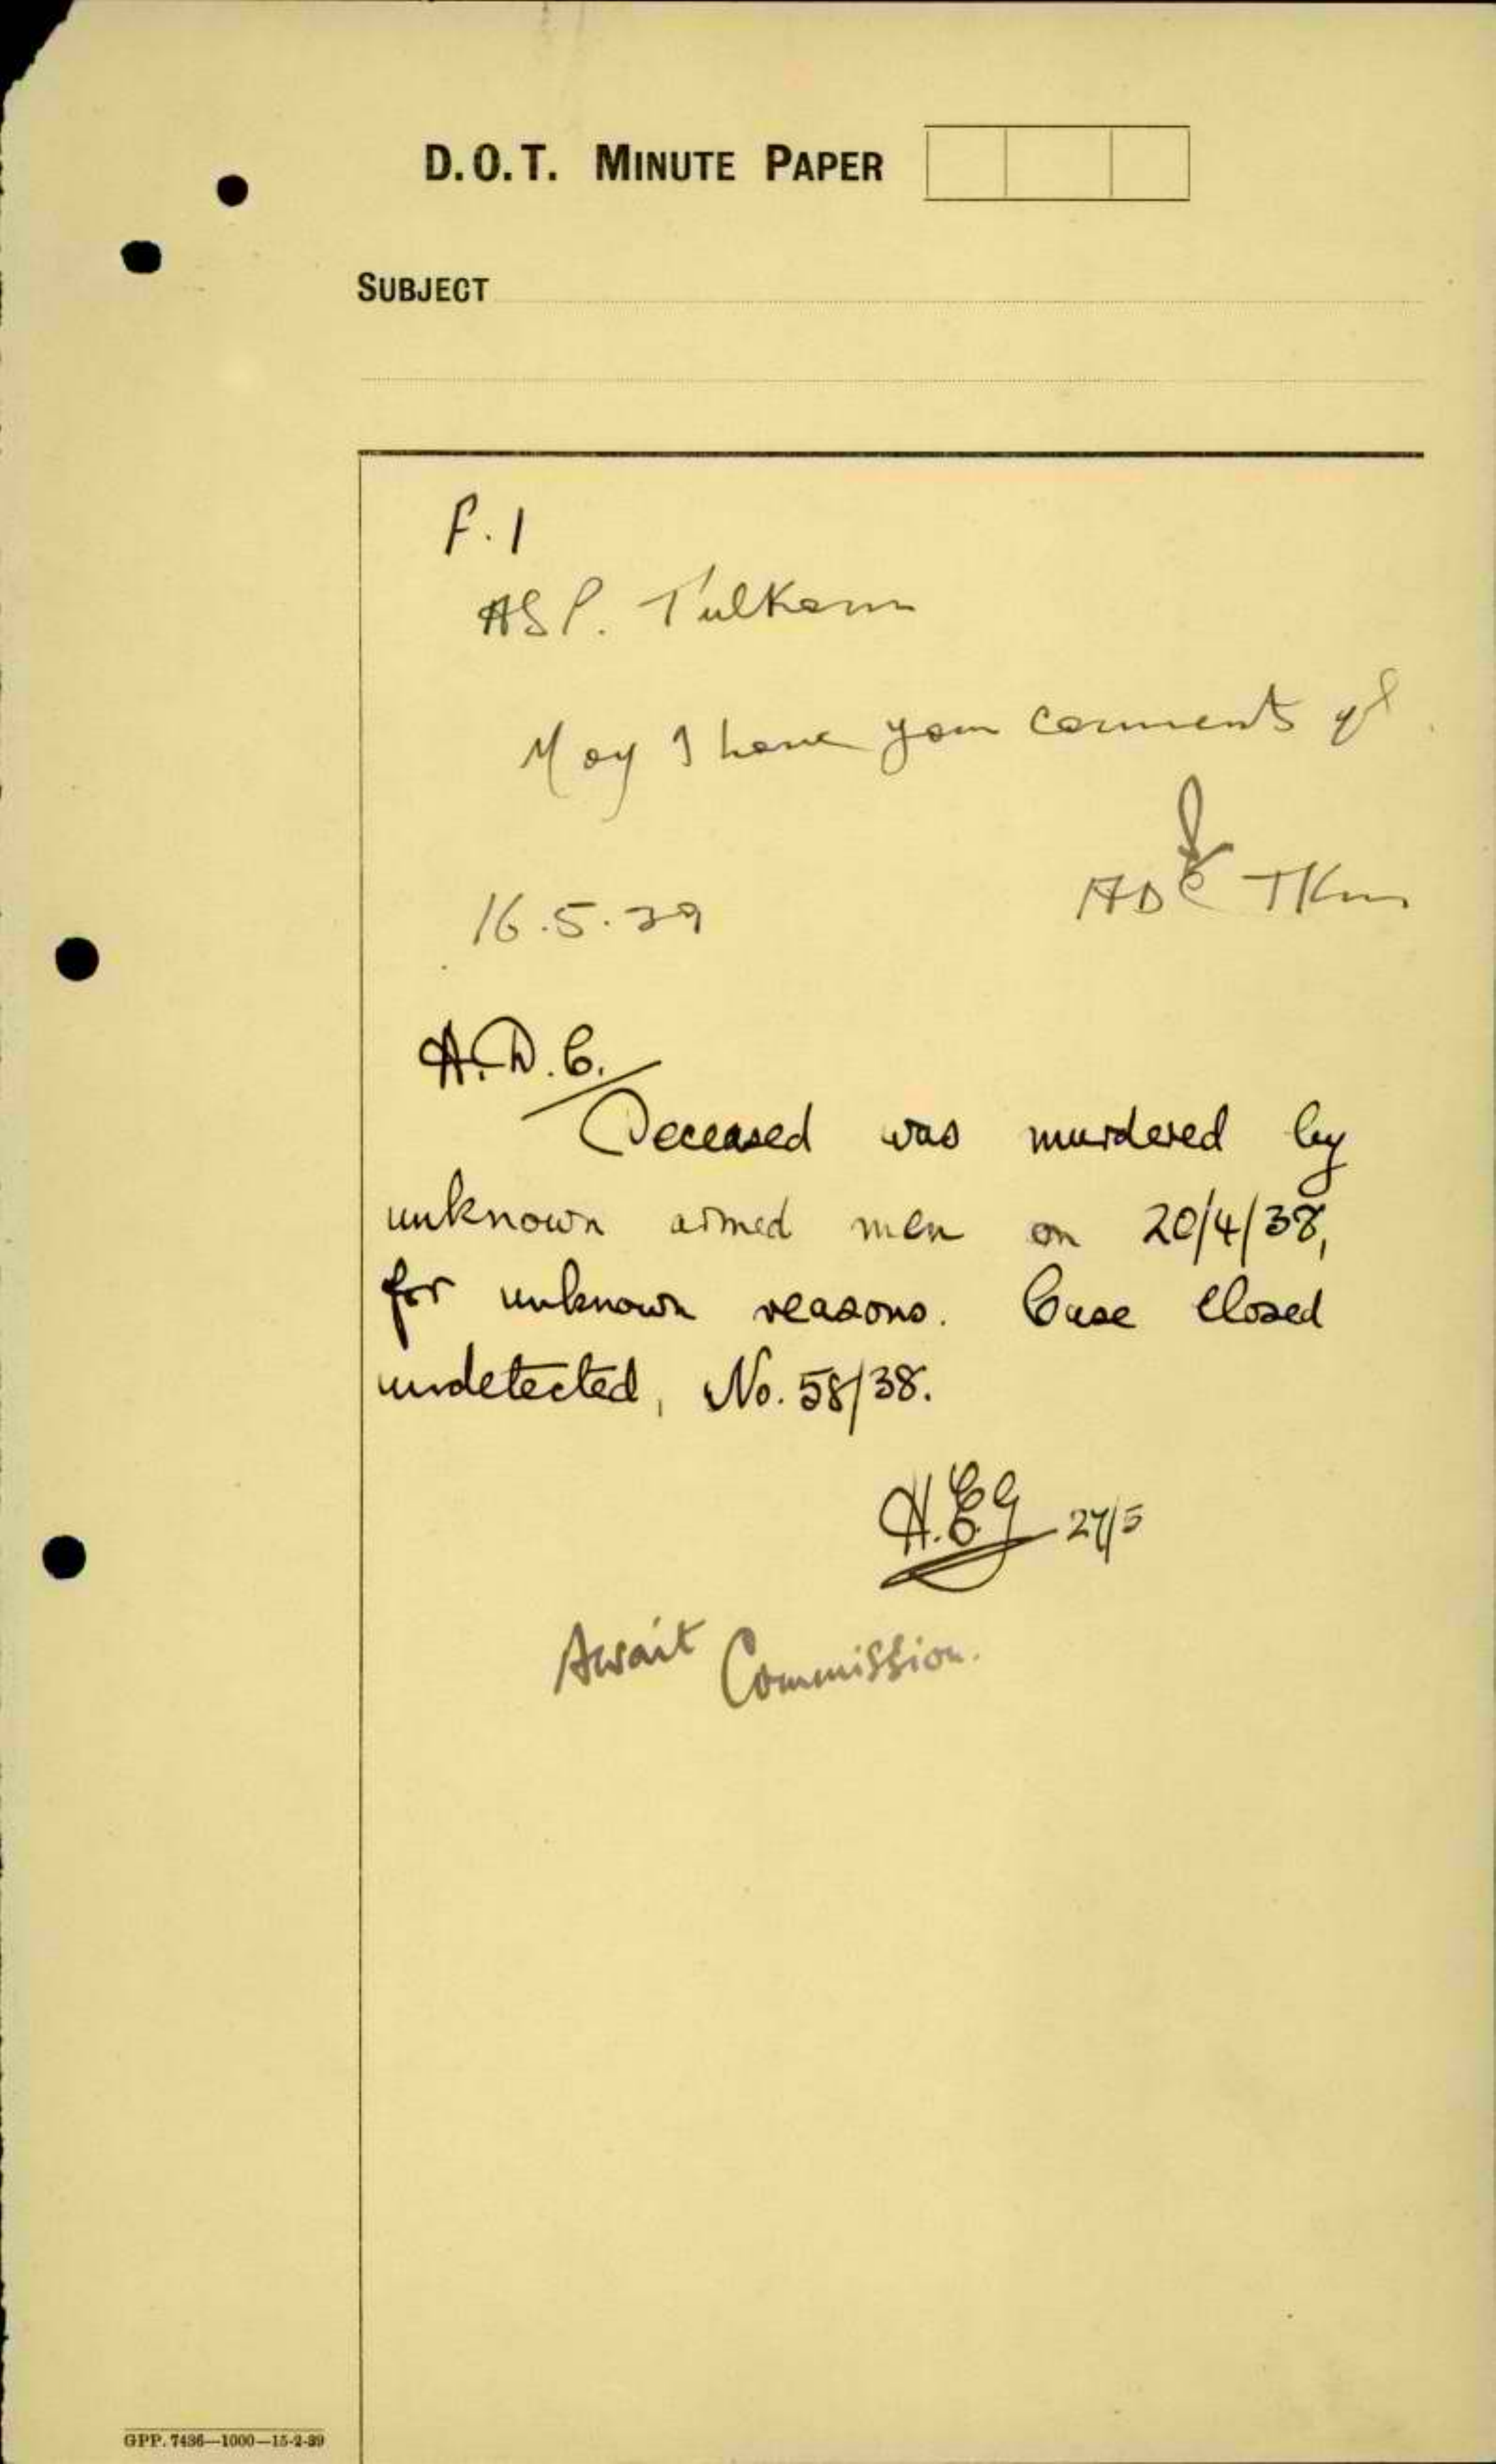 D.O.T. MINUTE PAPER
SUBJECT
F.1
ASP. Tulkarm
May I have your comments pl.
ADC TKm
16.5.39
A.D.C.
Deceased was murdered by
unknown armed men on 20/4/38,
for unknown reasons. Case closed
undetected, No. 58/38.
27/5
Await Commission.
GPP. 7436—1000—15-2-39